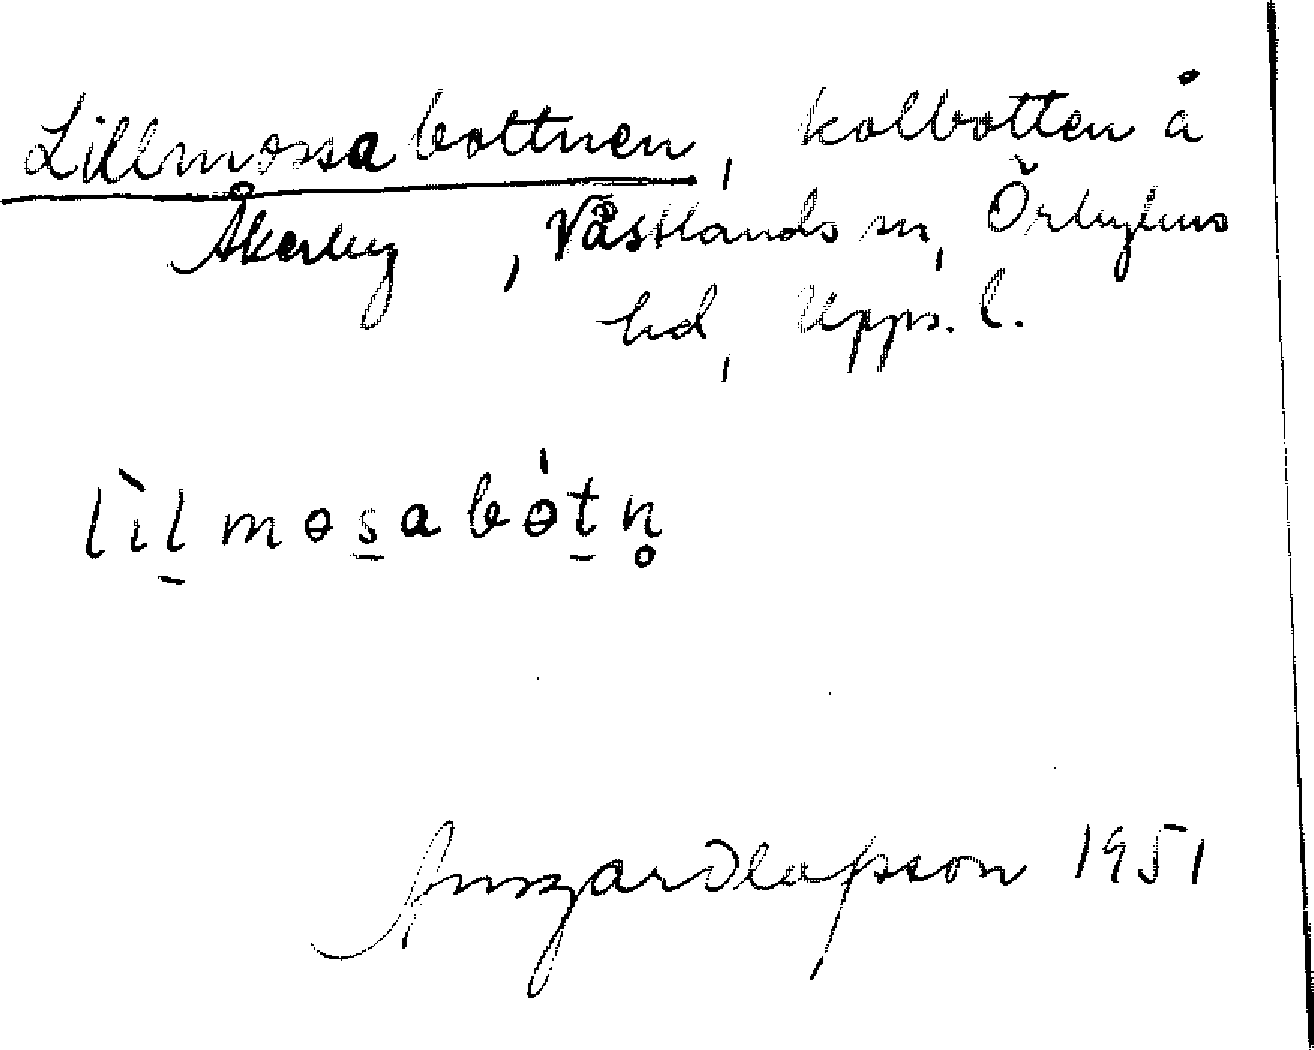 Lillmossabottnen, kolbotten å
Åkerby, Västlands sn, Örbyhus
hd, Upps. l.
lìl̠mɵs̠abɵ́t̠n̥
Ansgar Olafsson 1951